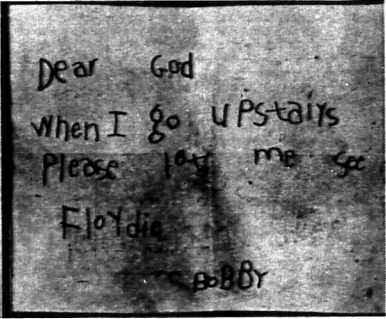 Dear God
When I go upstairs
Please lat me see
Floydie
BOBBY